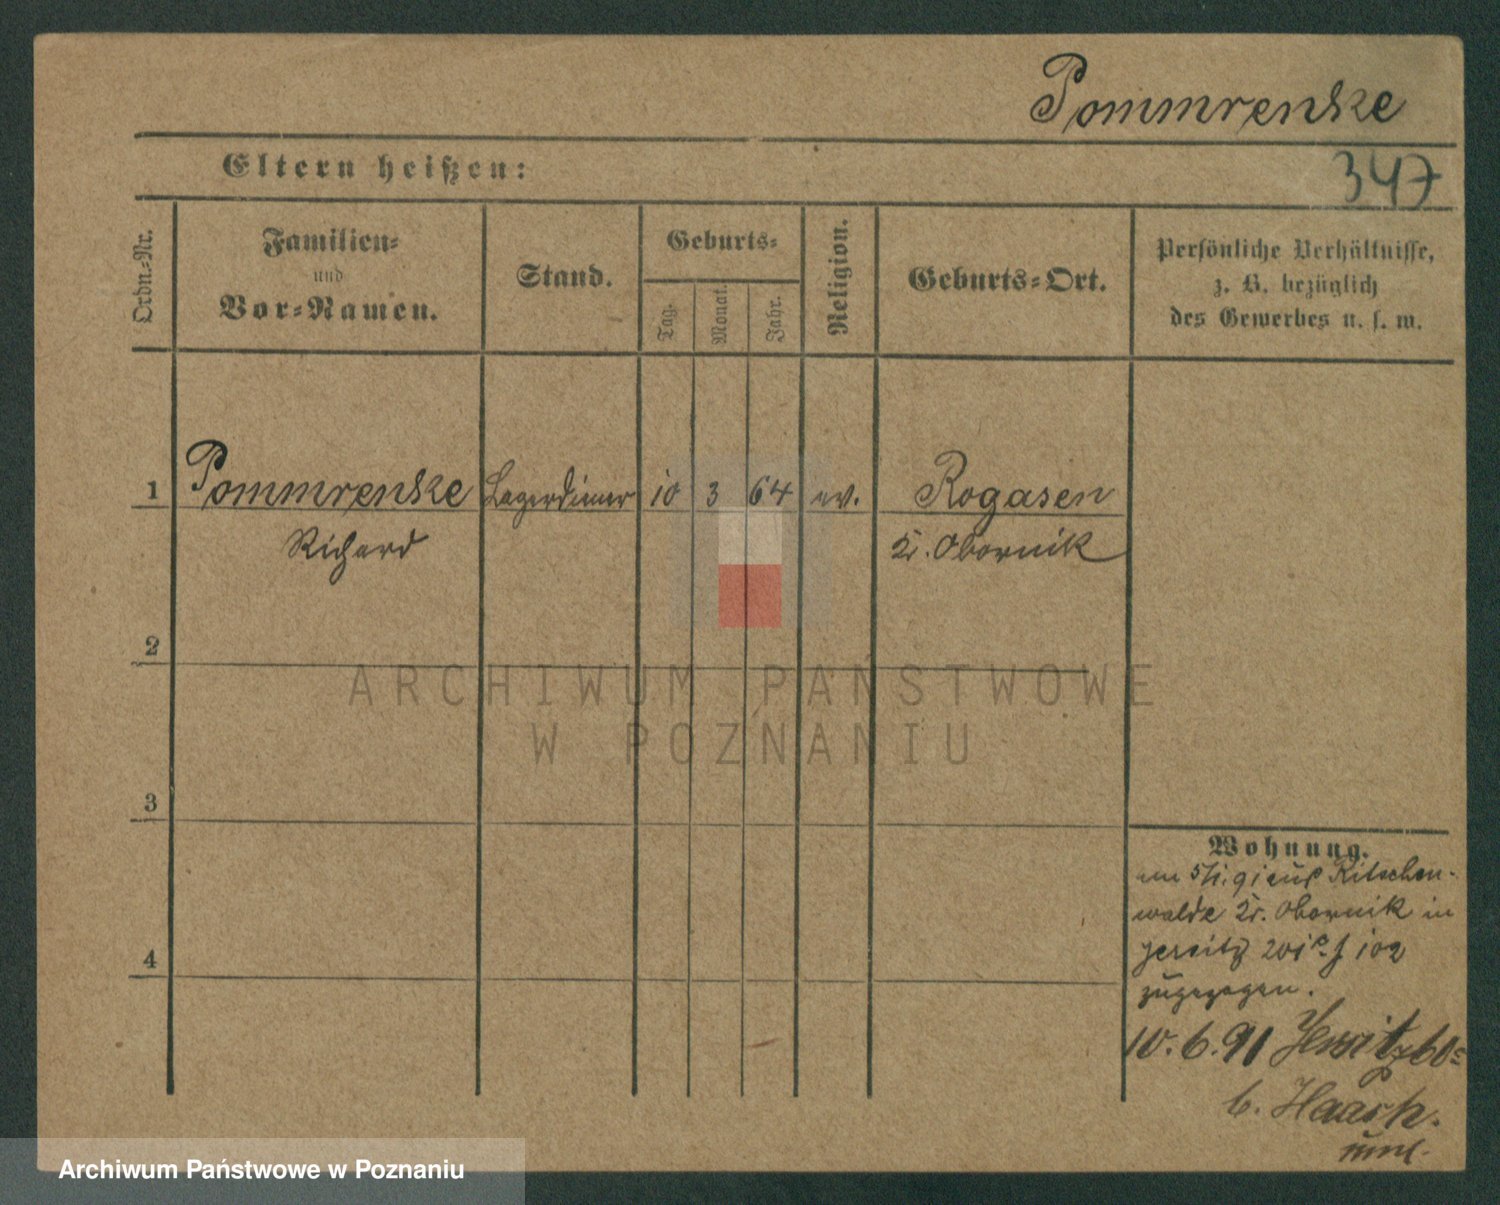 Pommrenke
Eltern heißen:
347
Ordn.-Nr.
Familien-
und
Vor-Namen.
Stand.
Geburts-
Tag.
Monat.
Jahr.
Religion.
Geburts-Ort.
Persönliche Verhältnisse,
z. B. bezüglich
des Gewerbes u. s. w.
1 Pommrenke Lagerdiener 10 3 64 ev. Rogasen
Richard Kr. Obornik
2
ARCHIWUM PAŃSTWOWE
W POZNANIU
3
Wohnung.
am 5/1.91 aus Ritschen-
walde Kr. Obornik in
Jersitz
zugezogen.
4
10.6.91 Jersitz
b. Haack
Archiwum Państwowe w Poznaniu